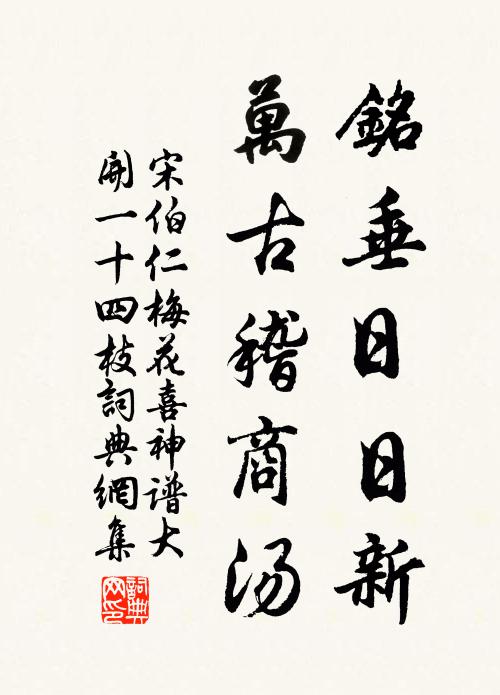 銘垂日日新
萬古稽商汤
宋伯仁梅花喜神谱大
開一十四枝詞典網集
詞典网印